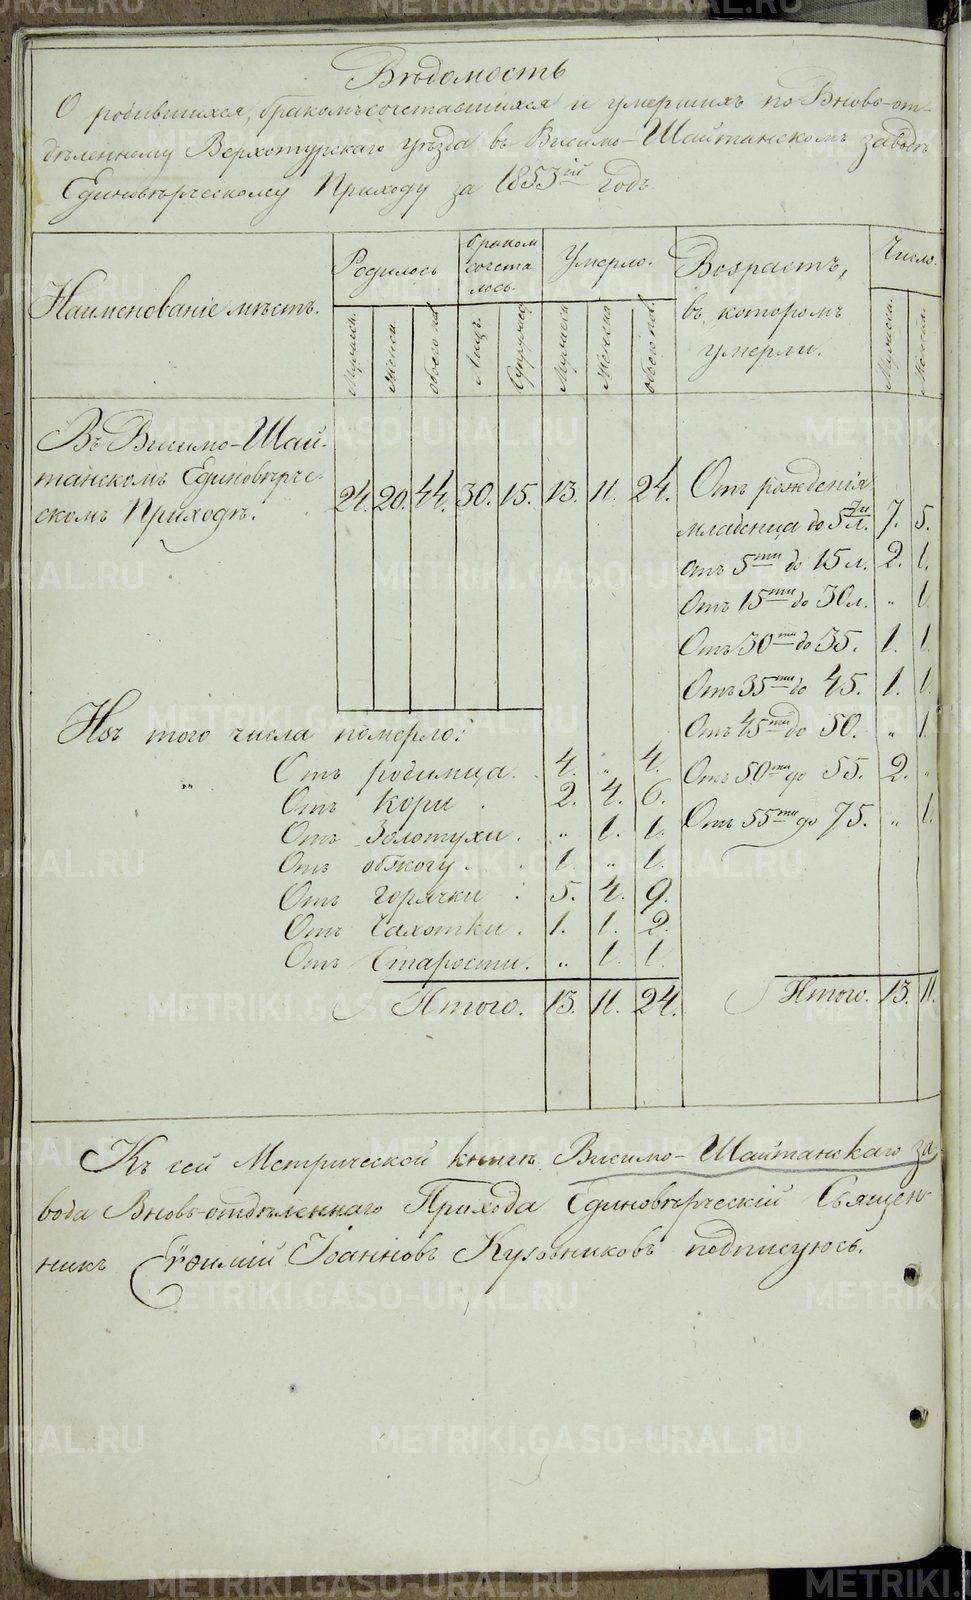 Вѣдомость
О родившихся, бракомъ сочетавшихся и умершихъ по Вновь-от-
дѣленному Верхотурскаго уѣзда въ Висимо-Шайтанскомъ заводѣ
Единовѣрческому Приходу за 1853ій годъ.
Наименованіе мѣстъ.
Родилось
Мужеск.
Женск.
обоего пол.
бракомъ
сочета
лось.
Лицъ.
Супружес.
Умерло.
Мужеск.
Женска
обоего пол.
Возрастъ,
въ которомъ
умерли.
Число.
Мужеск.
Женск.
Въ Висимо-Шай-
танскомъ Единовѣрче-
скомъ Приходѣ.
24. 20. 44. 30. 15. 13. 11. 24.
Отъ рожденія
младенца до 5ти л. 7. 5.
Отъ 5ти до 15 л. 2. 1.
Отъ 15ти до 30 л. „ 1.
Отъ 30ти до 35. 1. 1.
Отъ 35ти до 45. 1. 1.
Отъ 45ти до 50. „ 1.
Отъ 50ти до 55. 2. „
Отъ 55ти до 75. „ 1.
Итого. 13. 11.
Изъ того числа померло:
„ Отъ родимца. 4. „ 4.
Отъ кори. 2. 4. 6.
Отъ Золотухи. „ 1. 1.
Отъ обжогу. 1. „ 1.
Отъ горячки. 5. 4. 9.
Отъ Чахотки. 1. 1. 2.
Отъ Старости. „ 1. 1.
Итого. 13. 11. 24.
Къ сей Метрической книгѣ Висимо-Шайтанскаго за
вода Вновь-отдѣленнаго Прихода Единовѣрческій Священ
никъ Еѵѳимій Іоанновъ Кузовниковъ подписуюсь.
METRIKI.GASO-URAL.RU